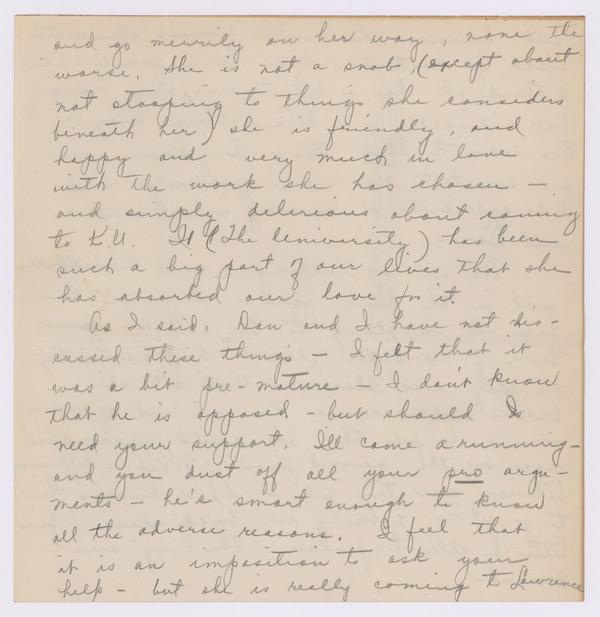 and go merrily on her way, none the
worse. She is not a snob, (except about
not stooping to things she considers
beneath her) she is friendly, and
happy and very much in love
with the work she has chosen –
and simply delirious about coming
to K.U. It (The University) has been
such a big part of our lives that she
has absorbed our love for it.
As I said, Dan and I have not dis-
cussed these things – I felt that it
was a bit pre-mature – I don't know
that he is opposed – but should I
need your support, I'll come a running –
and you dust off all your pro argu-
ments – he's smart enough to know
all the adverse reasons. I feel that
it is an imposition to ask your
help – but she is really coming to Lawrence